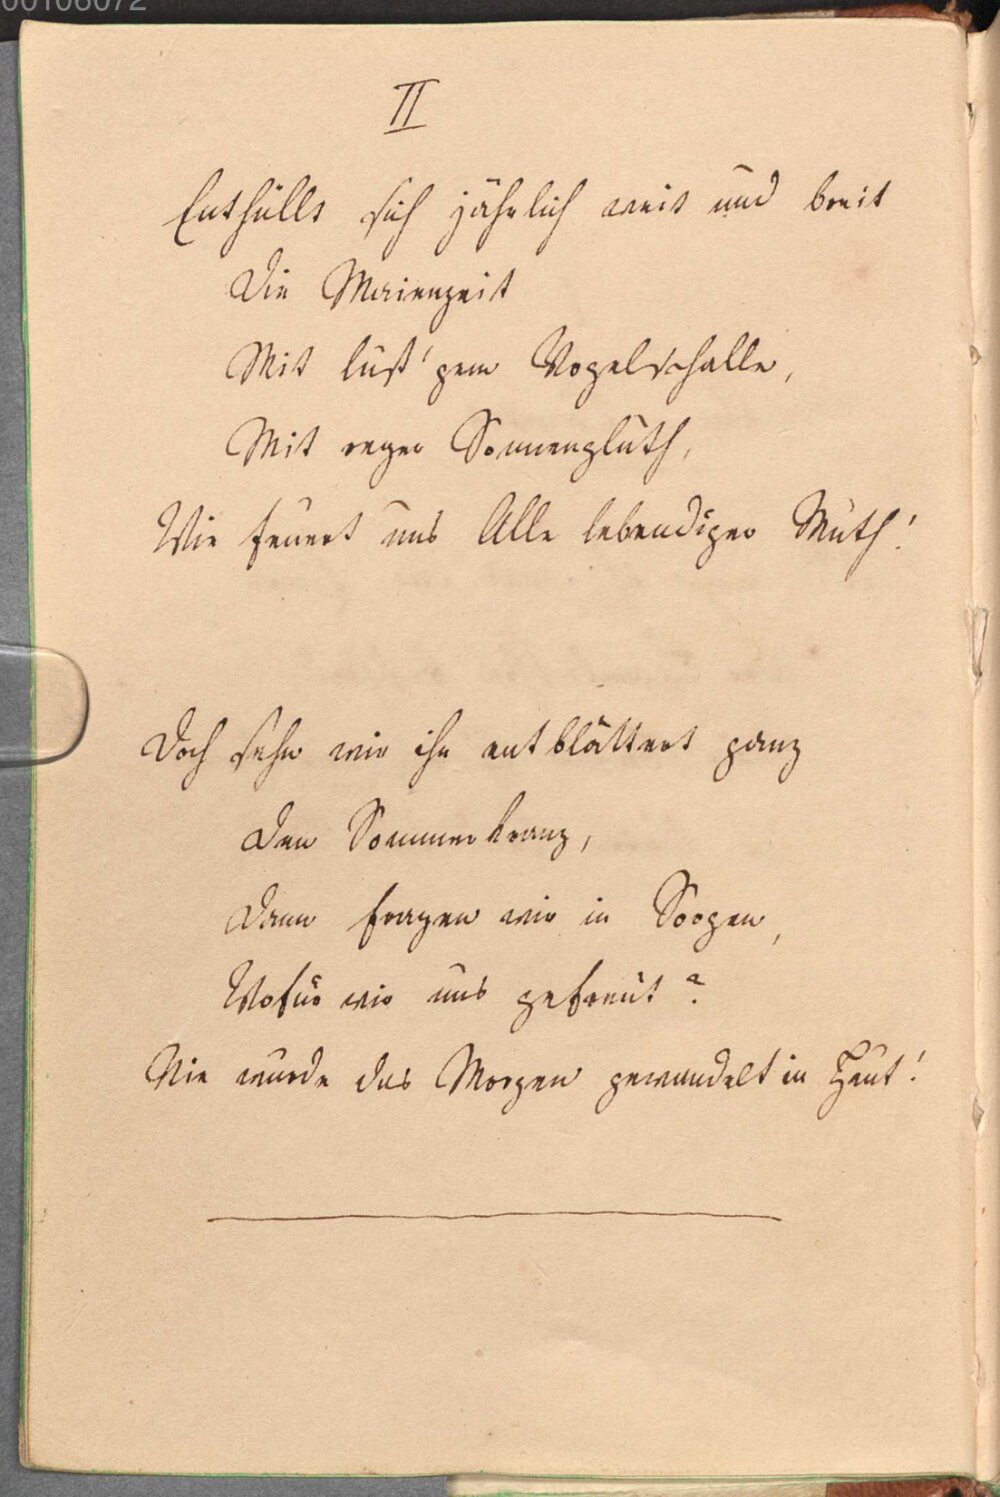 00106072
II
Enthüllt sich jährlich weit und breit
Die Maienzeit
Mit lust'gem Vogelschalle,
Mit reger Sonnengluth,
Wie feuert uns Alle lebendiger Muth!
Doch sehn wir ihn entblättert ganz
Den Sommerkranz,
Dann fragen wir in Sorgen,
Wofür wir uns gefreut?
Nie wurde das Morgen gewandelt in Heut!